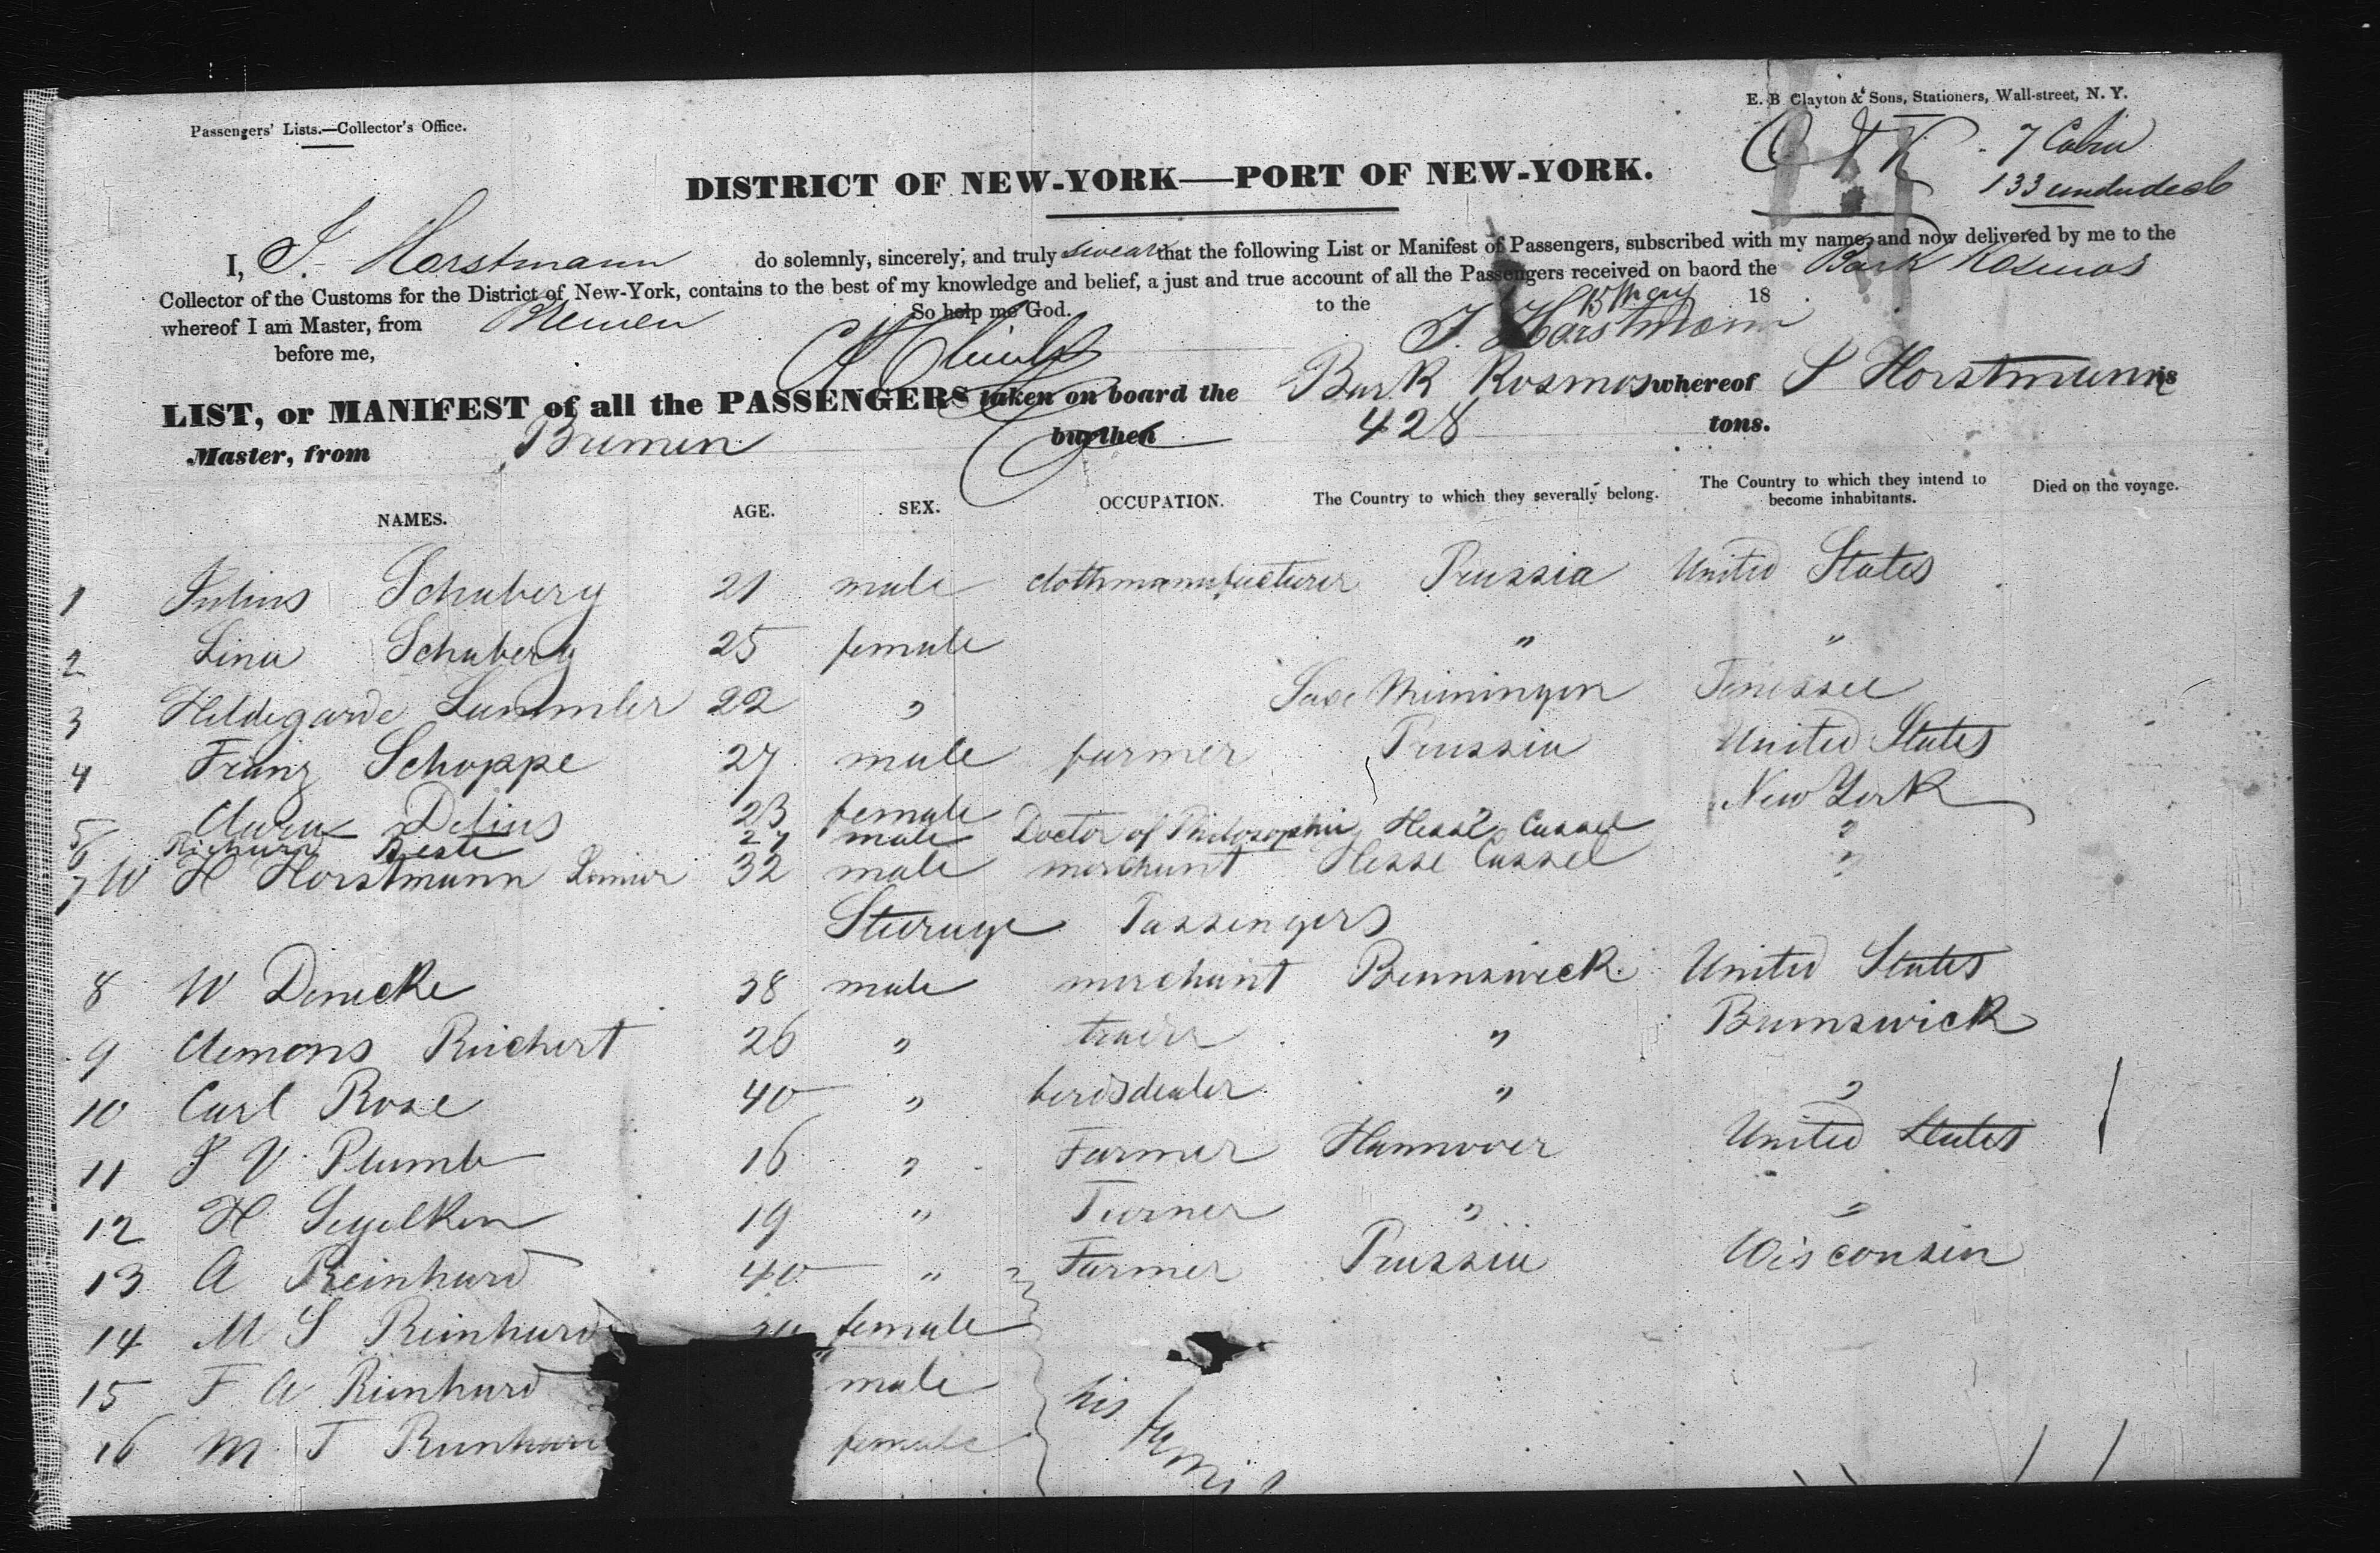 Passengers' Lists.—Collector's Office.
E. B Clayton & Sons, Stationers, Wall-street, N. Y.
7 Cabin
133 undudeck
DISTRICT OF NEW-YORK—PORT OF NEW-YORK.
I, J. Horstmann do solemnly, sincerely, and truly swear that the following List or Manifest of Passengers, subscribed with my name, and now delivered by me to the
Collector of the Customs for the District of New-York, contains to the best of my knowledge and belief, a just and true account of all the Passengers received on baord the Bark Kosmos
whereof I am Master, from Bremen So help me God. to the 15 May 18
before me, J. Horstmann
LIST, or MANIFEST of all the PASSENGERS taken on board the Bark Kosmos whereof J Horstmann is
Master, from Bremen burthen 428 tons.
NAMES. AGE. SEX. OCCUPATION. The Country to which they severally belong. The Country to which they intend to become inhabitants. Died on the voyage.
1 Julius Schuberg 21 male clothmanufacturer Prussia United States
2 Lina Schuberg 25 female " "
3 Hildegarde Lammler 22 " Saxe Meiningen Tenessee
4 Franz Schoppe 27 male farmer Prussia United States
5 Clara Delius 23 female New York
6 Richard Beste 27 male Doctor of Philosophie Hesse Cassel "
7 W H Horstmann 32 male merchant Hesse Cassel "
Steerage Passengers
8 W Denecke 38 male merchant Brunswick United States
9 Clemons Reichert 26 " trader " Brunswick
10 Carl Rose 40 " birdsdealer " "
11 J V Plumb 16 " Farmer Hannover United States
12 H Segelken 19 " Turner " "
13 A Reinhard 40 " Farmer Prussia Wisconsin
14 M S Reinhard female
15 F A Reinhard male
16 M T Reinhard female
his famil